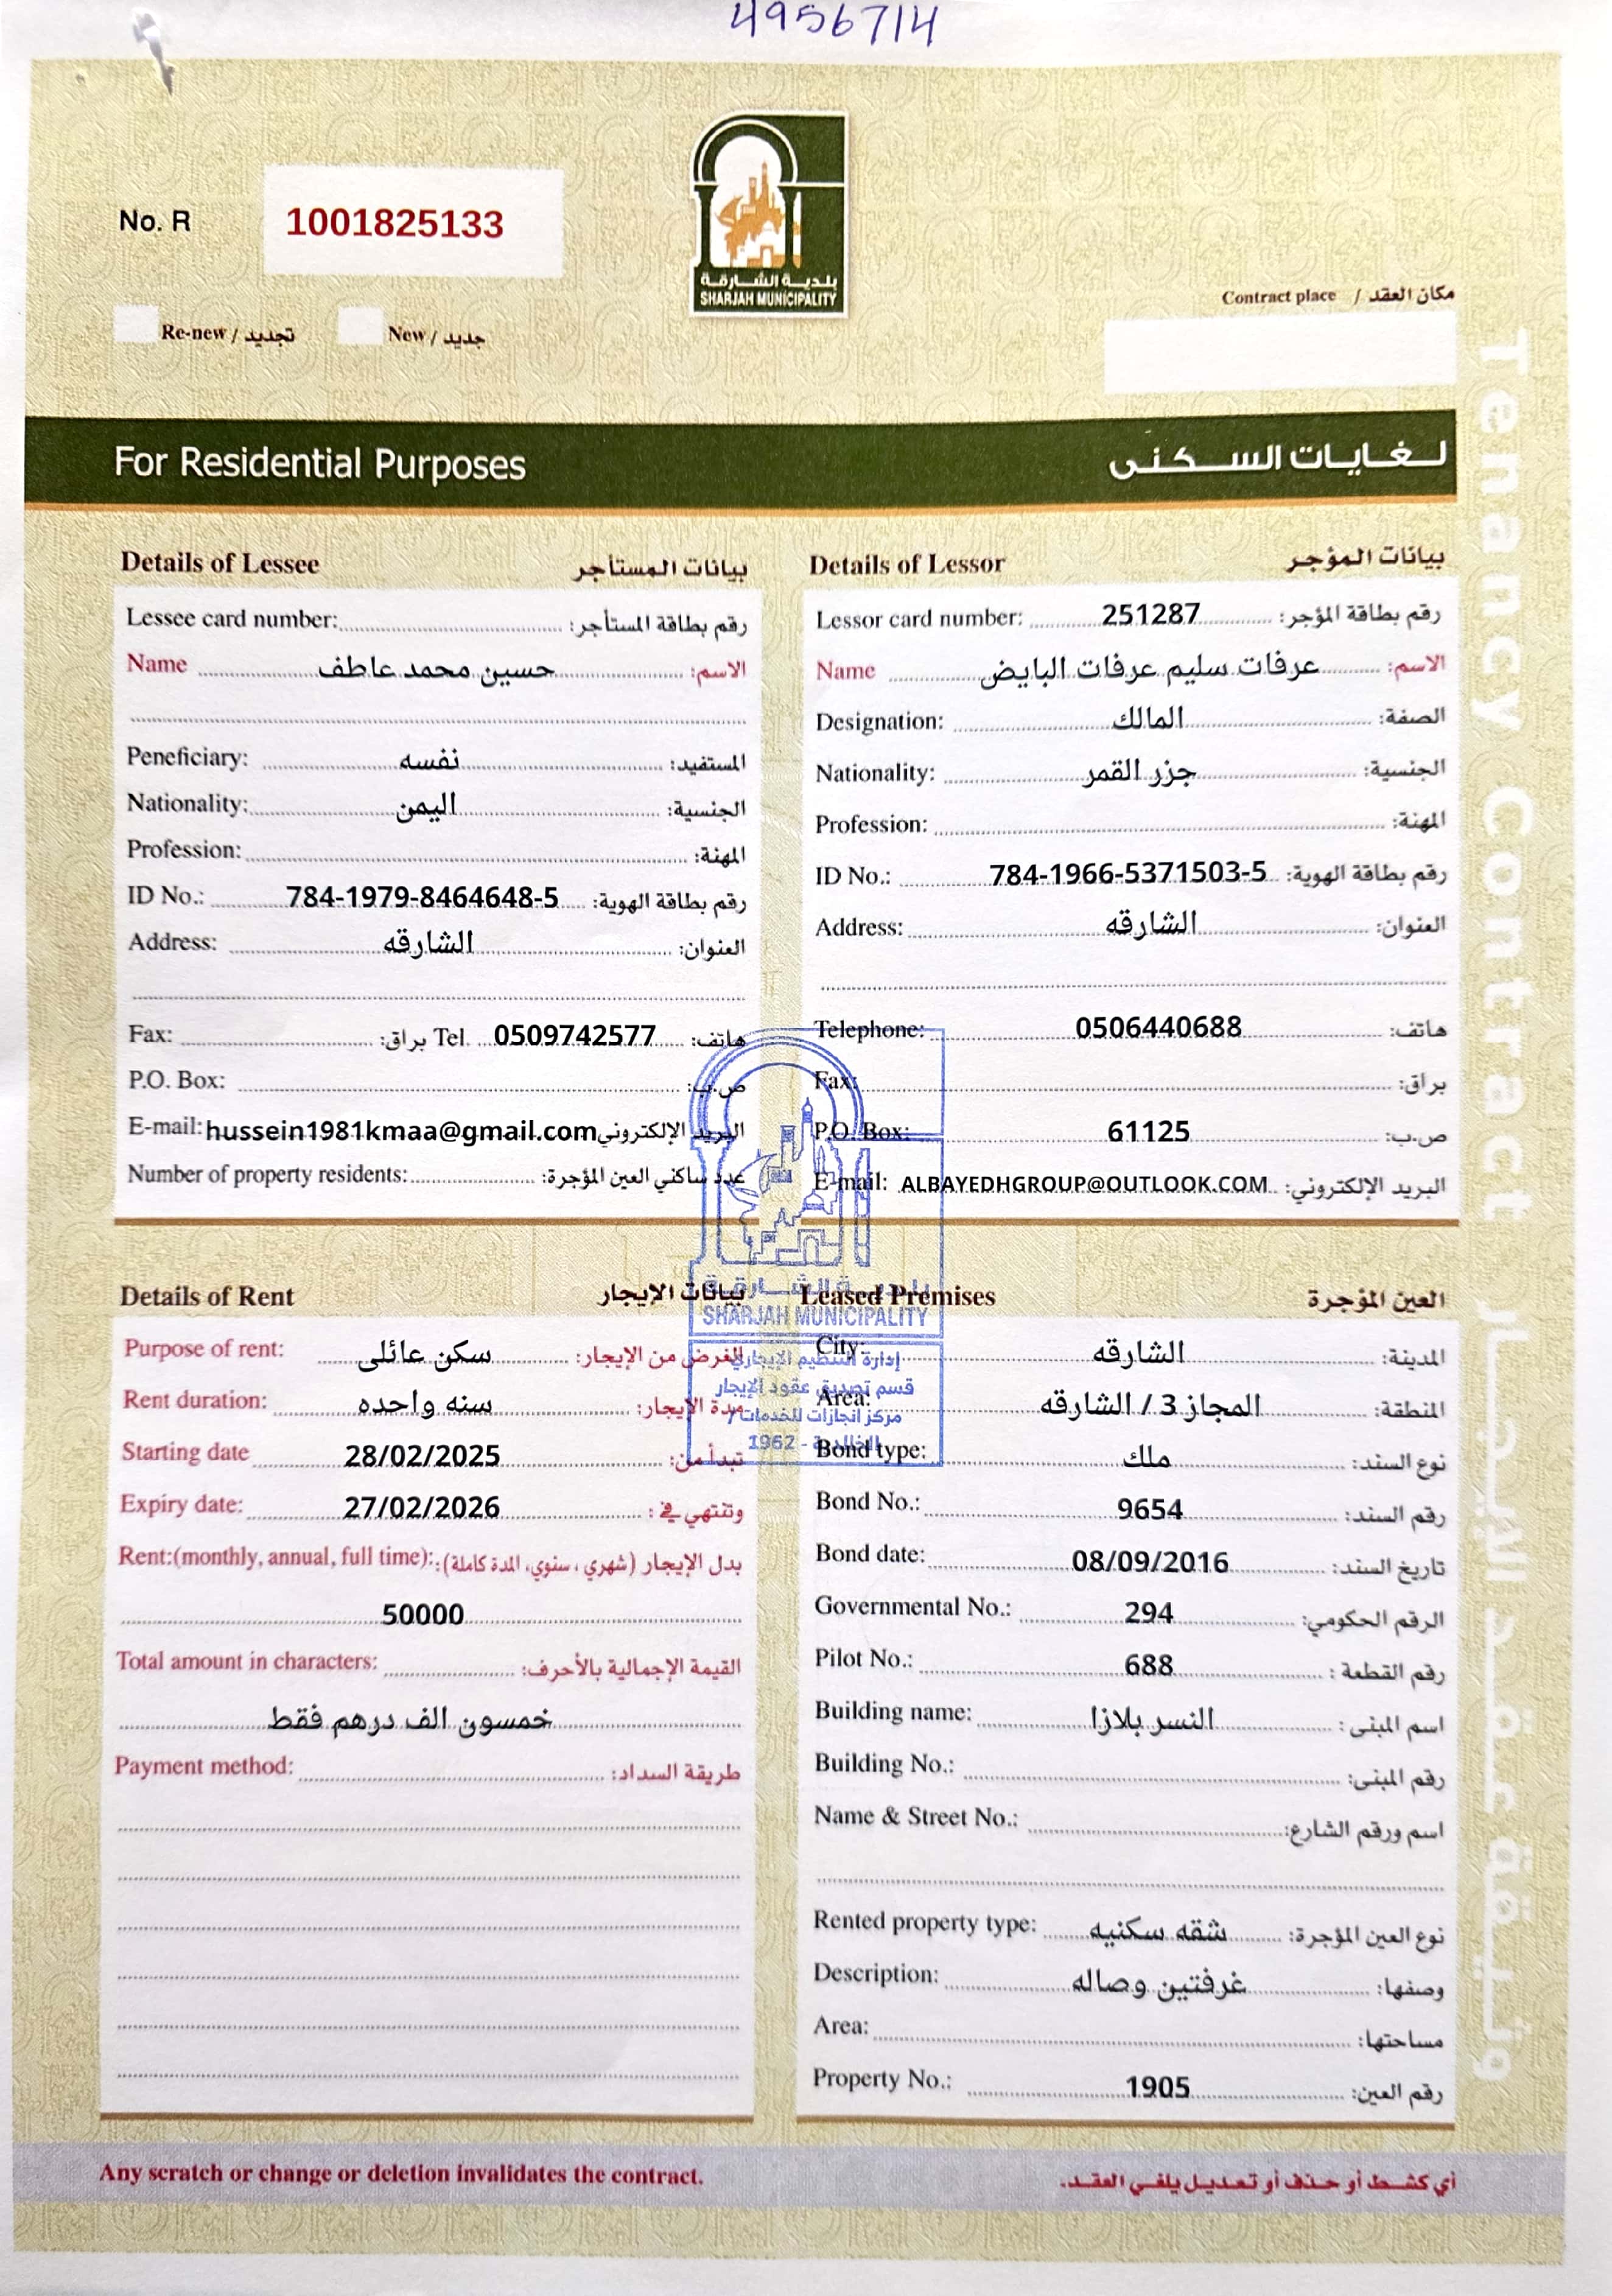 4956714
No. R 1001825133
بلدية الشارقة
SHARJAH MUNICIPALITY
Contract place / مكان العقد
Re-new / تجديد New / جديد
For Residential Purposes لغايات السكنى
Tenancy Contract
Details of Lessee بيانات المستأجر
Lessee card number: رقم بطاقة المستأجر:
Name حسين محمد عاطف الاسم:
Peneficiary: نفسه المستفيد:
Nationality: اليمن الجنسية:
Profession: المهنة:
ID No.: 784-1979-8464648-5 رقم بطاقة الهوية:
Address: الشارقه العنوان:
Fax: براق: Tel. 0509742577 هاتف:
P.O. Box: ص.ب:
E-mail: hussein1981kmaa@gmail.com البريد الإلكتروني
Number of property residents: عدد ساكني العين المؤجرة:
Details of Lessor بيانات المؤجر
Lessor card number: 251287 رقم بطاقة المؤجر:
Name عرفات سليم عرفات البايض الاسم:
Designation: المالك الصفة:
Nationality: جزر القمر الجنسية:
Profession: المهنة:
ID No.: 784-1966-5371503-5 رقم بطاقة الهوية:
Address: الشارقه العنوان:
Telephone: 0506440688 هاتف:
Fax: براق:
P.O. Box: 61125 ص.ب:
E-mail: ALBAYEDHGROUP@OUTLOOK.COM البريد الإلكتروني:
بلدية الشارقة
SHARJAH MUNICIPALITY
إدارة التنظيم الإيجاري
قسم تصديق عقود الإيجار
مركز انجازات للخدمات /
الخالدية - 1962
Details of Rent بيانات الإيجار
Purpose of rent: سكن عائلى الغرض من الإيجار:
Rent duration: سنه واحده مدة الإيجار:
Starting date 28/02/2025 تبدأ من:
Expiry date: 27/02/2026 وتنتهي في :
Rent:(monthly, annual, full time): بدل الإيجار (شهري ، سنوي، المدة كاملة):
50000
Total amount in characters: القيمة الإجمالية بالأحرف:
خمسون الف درهم فقط
Payment method: طريقة السداد:
Leased Premises العين المؤجرة
City: الشارقه المدينة:
Area: المجاز 3 / الشارقه المنطقة:
Bond type: ملك نوع السند:
Bond No.: 9654 رقم السند:
Bond date: 08/09/2016 تاريخ السند:
Governmental No.: 294 الرقم الحكومي:
Pilot No.: 688 رقم القطعة :
Building name: النسر بلازا اسم المبنى :
Building No.: رقم المبنى:
Name & Street No.: اسم ورقم الشارع:
Rented property type: شقه سكنيه نوع العين المؤجرة:
Description: غرفتين وصاله وصفها:
Area: مساحتها:
Property No.: 1905 رقم العين:
Any scratch or change or deletion invalidates the contract. أي كشط أو حذف أو تعديل يلغي العقد.